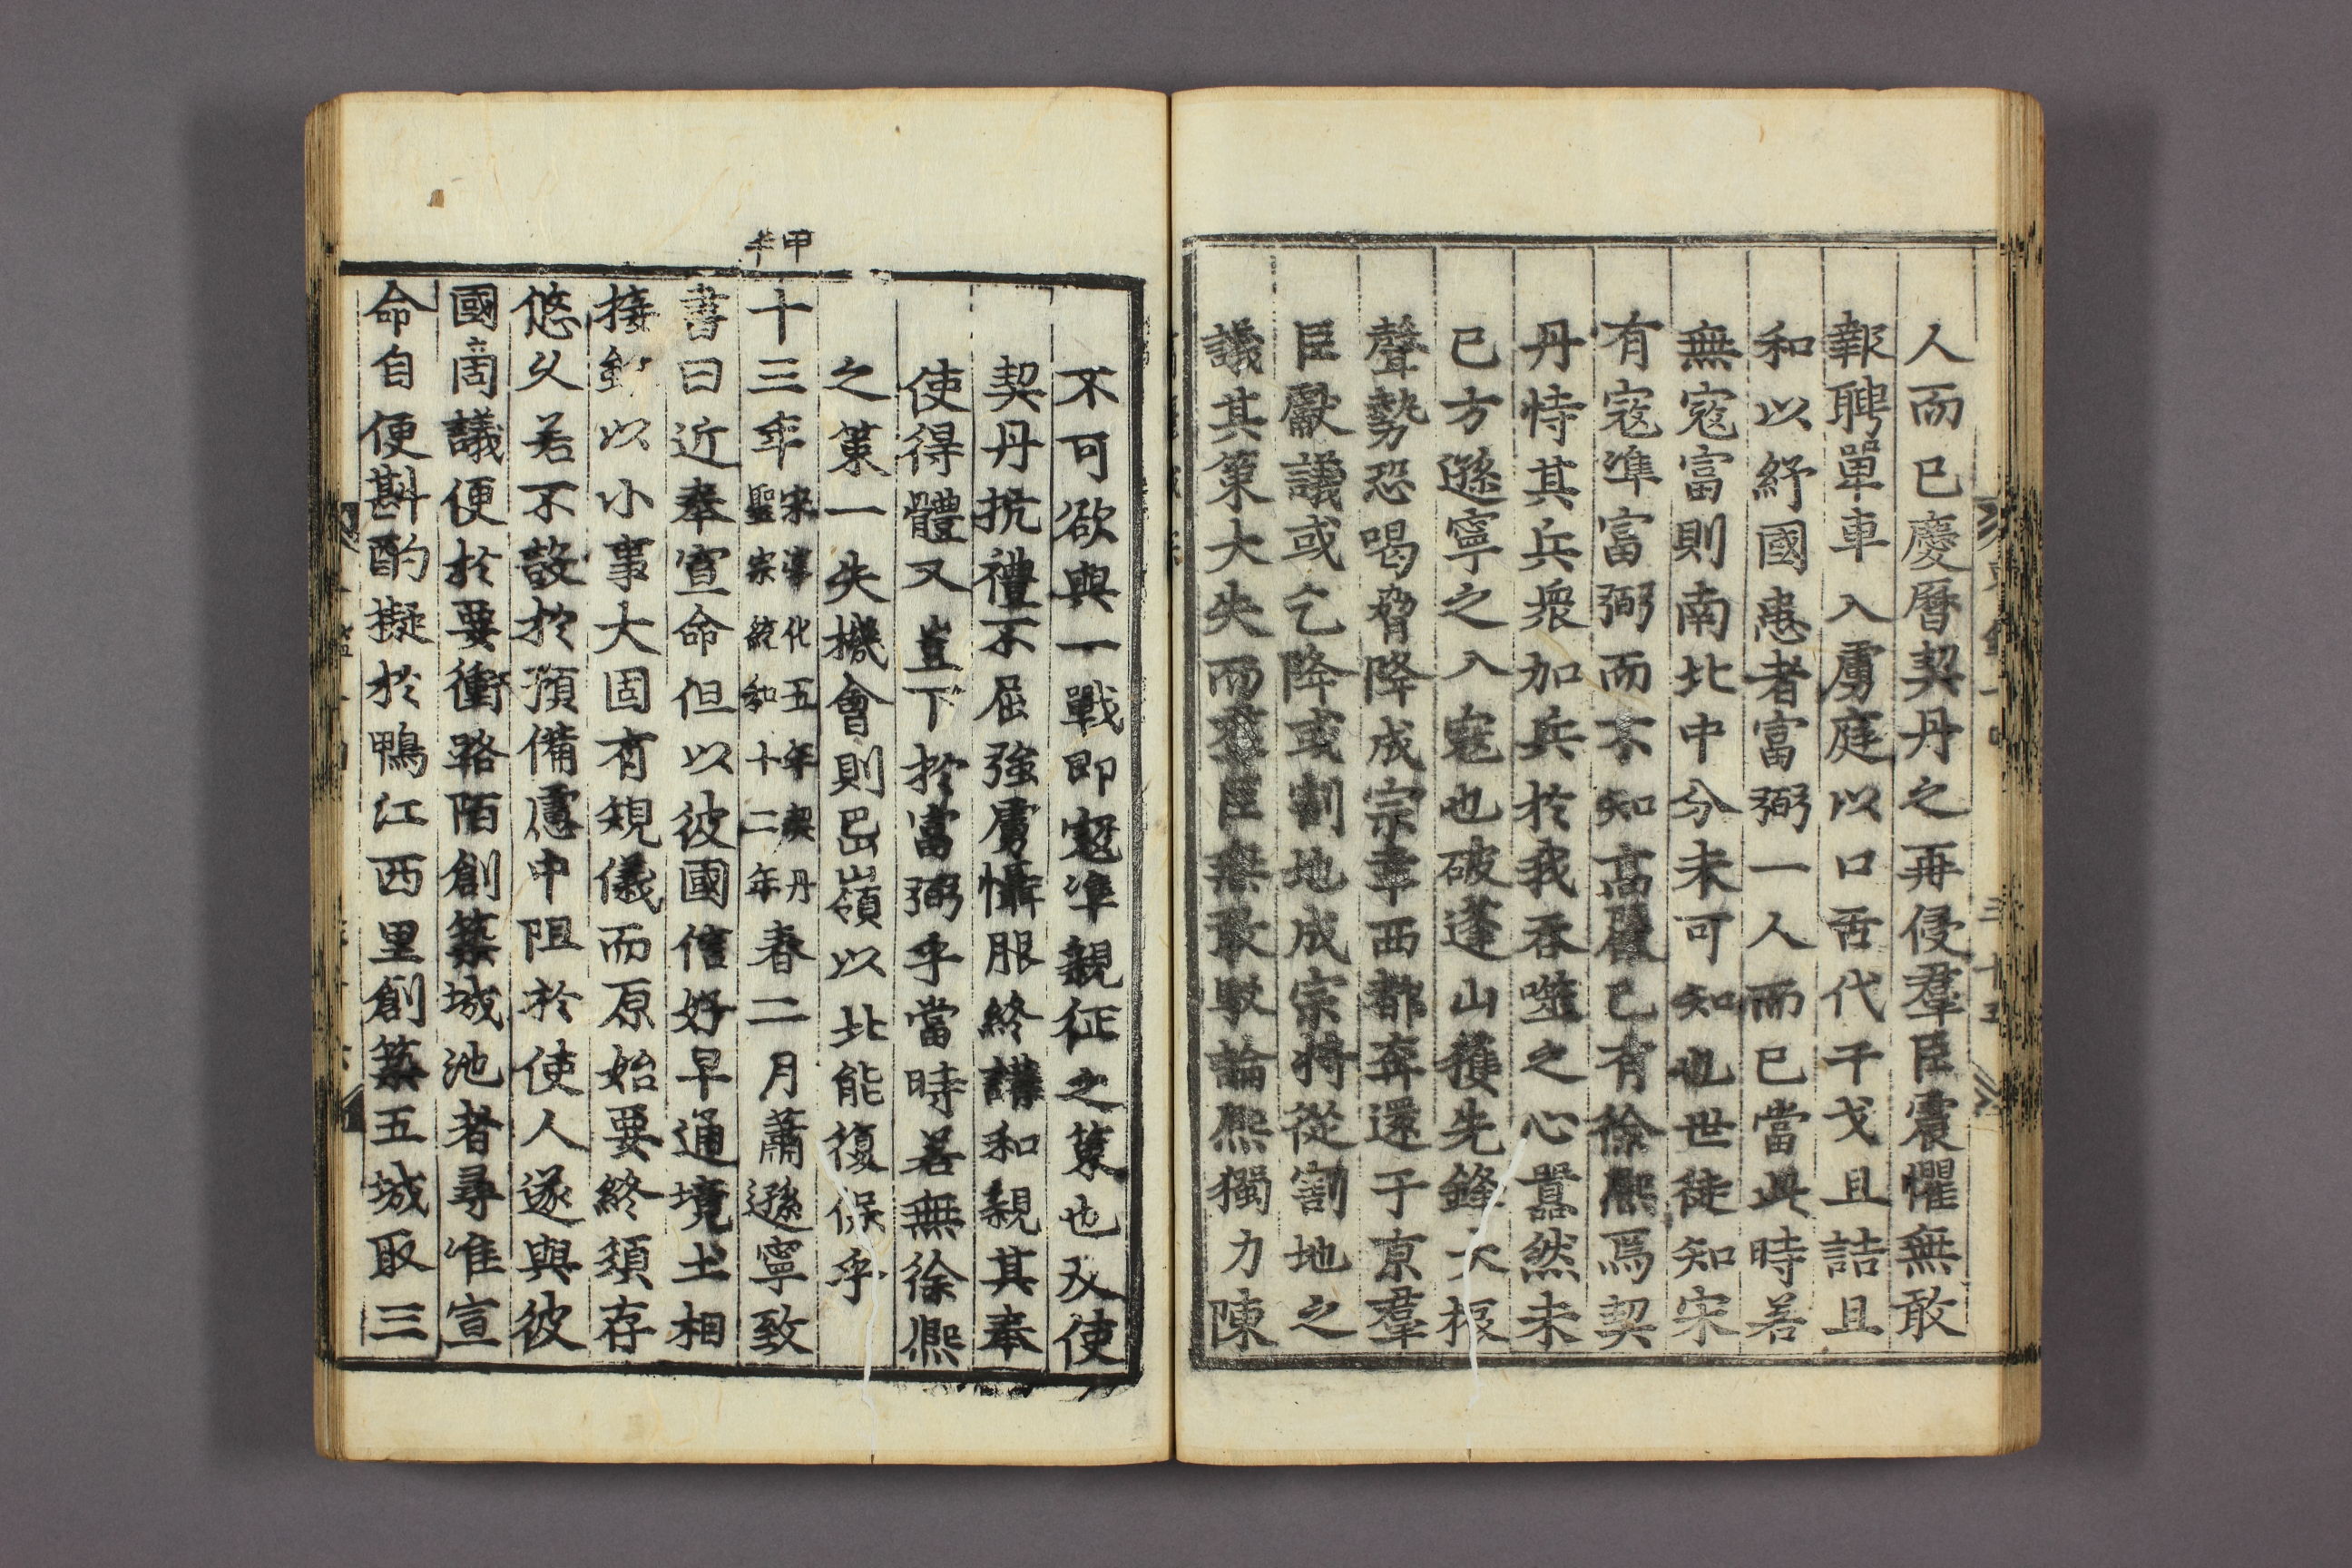 人而已慶曆契丹之再侵羣臣震懼無敢
報聘單車入虜庭以口舌代干戈且詰且
和以紓國患者富弼一人而已當此時若
無寇富則南北中分未可知也世徒知宋
有寇準富弼而不知高麗已有徐熙焉契
丹恃其兵衆加兵於我吞噬之心嚣然未
已方遜寧之入寇也破蓬山獲先鋒大振
聲勢恐喝脅降成宗幸西都奔還于京羣
臣獻議或乞降或割地成宗將從割地之
議其策大失而群臣無敢駁論熙獨力陳
不可欲與一戰即寇準親征之策也及使
契丹抗禮不屈強虜懾服終講和親其奉
使得體又豈下於富弼乎當時若無徐熙
之策一失機會則岊嶺以北能復保乎
甲午
十三年宋淳化五年契丹聖宗統和十二年春二月蕭遜寧致
書曰近奉宣命但以彼國信好早通境土相
接雖以小事大固有規儀而原始要終須存
悠久若不設於預備慮中阻於使人遂與彼
國商議便於要衝路陌創築城池者尋准宣
命自便斟酌擬於鴨江西里創築五城取三